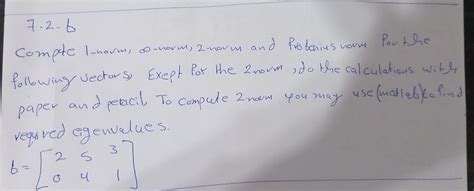 7.2.b
Compte 1-norm, ∞-norm, 2-norm and Frobenius norm for the
following vectors, Exept for the 2norm, do the calculations with
paper and pencil. To compute 2-norm you may use (matlab) to find
required eigenvalues.
b = [ 2 5 3
0 4 1 ]